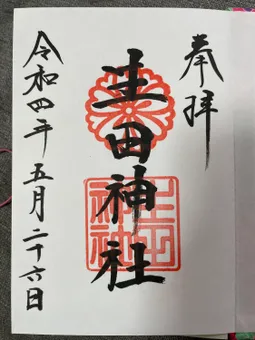 奉拝
生田神社
令和四年五月二十六日
生田神社